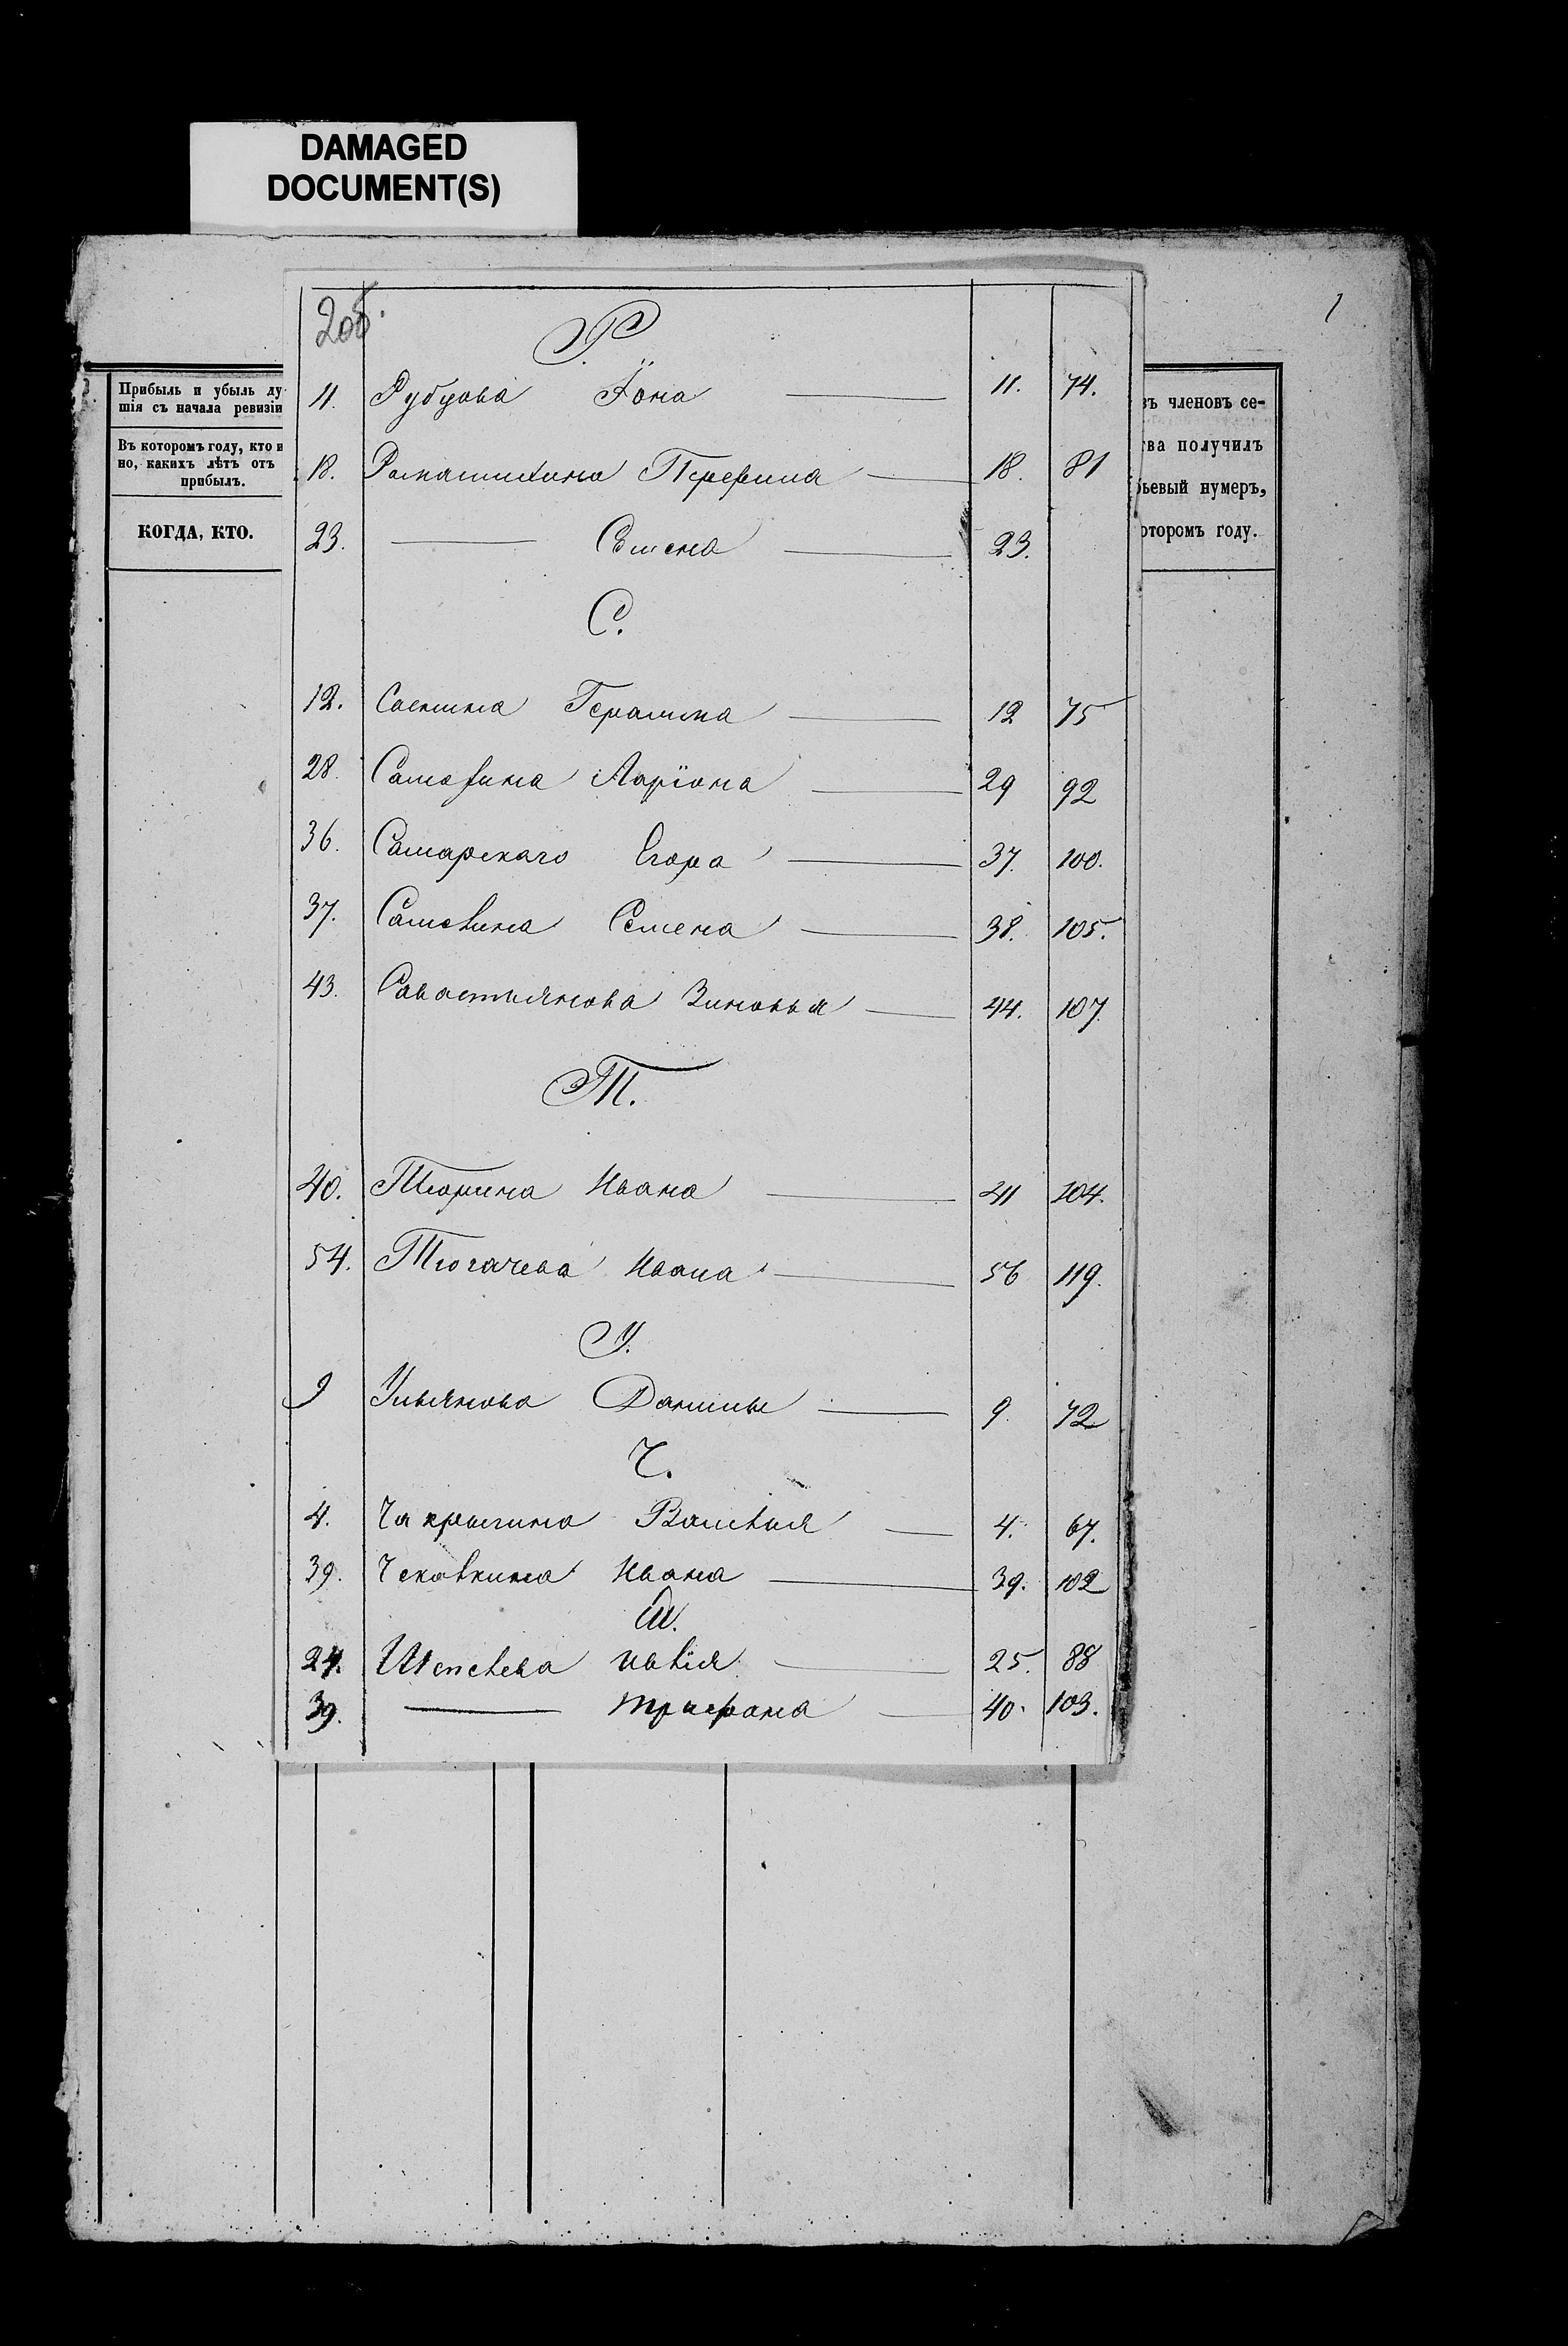 DAMAGED
DOCUMENT(S)
1
2об.
Р.
11. Рубцова Iона 11. 74.
18. Ромашихина 18. 81
23. Семена 23.
С.
12. Саенина Герасима 12 75
28. Самохина Ларiона 29 92
36. Самарскаго Егора 37. 100.
37. Самохина Семена 38. 105.
43. Савастьянова Зиновья 44. 107.
Т.
40. Тюрина Ивана 41 104.
54. Тюгачева Ивана 56 119.
У.
9 Ульянова Данилы 9. 72
Ч.
4. Чапрыгина 4. 67.
39. Ивана 39. 102
Ш.
24. 25. 88
39. Трифона 40. 103.
Прибыль и убыль ду
шія съ начала ревизіи
Въ которомъ году, кто и
но, какихъ лѣтъ отъ
прибылъ.
КОГДА, КТО.
въ членовъ се-
тва получилъ
ьевый нумеръ,
оторомъ году.